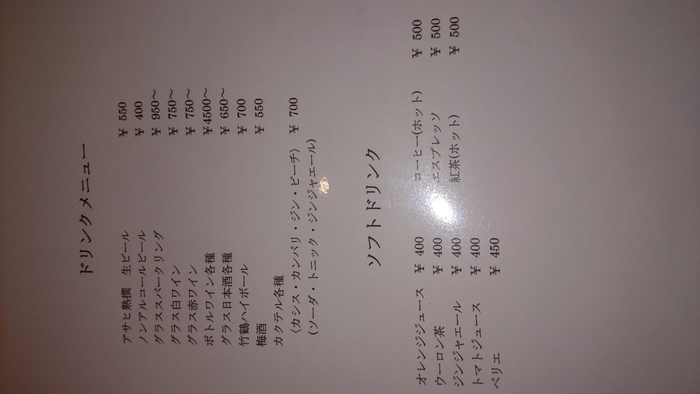 ドリンクメニュー
アサヒ熟撰 生ビール ¥ 550
ノンアルコールビール ¥ 400
グラススパークリング ¥ 950～
グラス白ワイン ¥ 750～
グラス赤ワイン ¥ 750～
ボトルワイン各種 ¥4500～
グラス日本酒各種 ¥ 650～
竹鶴ハイボール ¥ 700
梅酒 ¥ 550
カクテル各種 ¥ 700
〈カシス・カンパリ・ジン・ピーチ〉
(ソーダ・トニック・ジンジャエール)
ソフトドリンク
オレンジジュース ¥ 400 コーヒー(ホット) ¥ 500
ウーロン茶 ¥ 400 エスプレッソ ¥ 500
ジンジャエール ¥ 400 紅茶(ホット) ¥ 500
トマトジュース ¥ 400
ペリエ ¥ 450